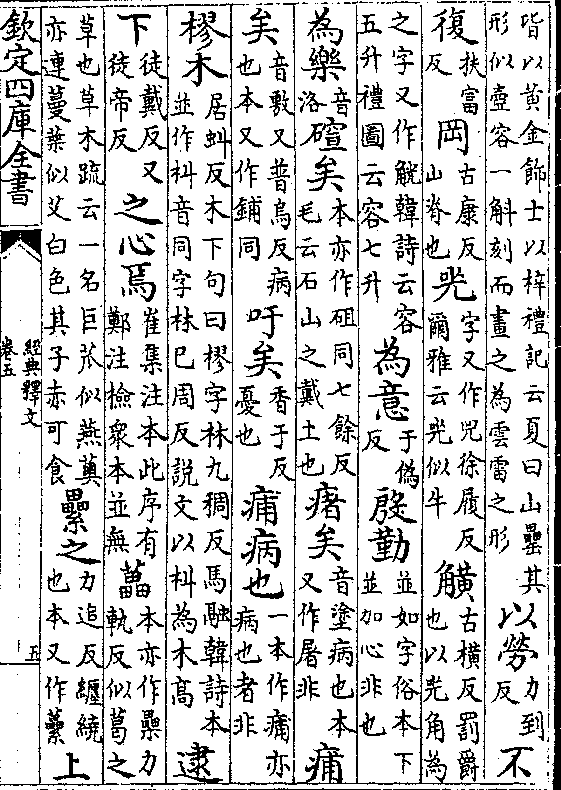 皆以黄金飾士以梓禮記云夏曰山罍其形似壺容一斛刻而畫之為雲雷之形以勞力到反不
復扶富反岡古康反山脊也兕字又作兕徐履反爾雅云兕似牛觵古横反罰爵也以兕角為
之字又作觥韓詩云容五升禮圖云容七升為意于偽反殷勤並如字俗本下並加心非也
為樂音洛碹矣本亦作砠同七餘反毛云石山之戴土也瘏矣音塗病也本又作屠非痡
矣音敷又普烏反病也本又作鋪同吁矣香于反憂也痡病也一本作痡亦病也者非
樛木居虯反木下句曰樛字林九稠反馬融韓詩本並作朻音同字林已周反説文以朻為木髙逮
下徒戴反又徒帝反之心焉崔集注本此序有鄭注檢衆本並無藟本亦作虆力軌反似葛之
草也草木疏云一名巨苽似燕薁亦連蔓葉似艾白色其子赤可食纍之力追反纒繞也本又作虆上
欽定四庫全書
經典釋文
卷五
五